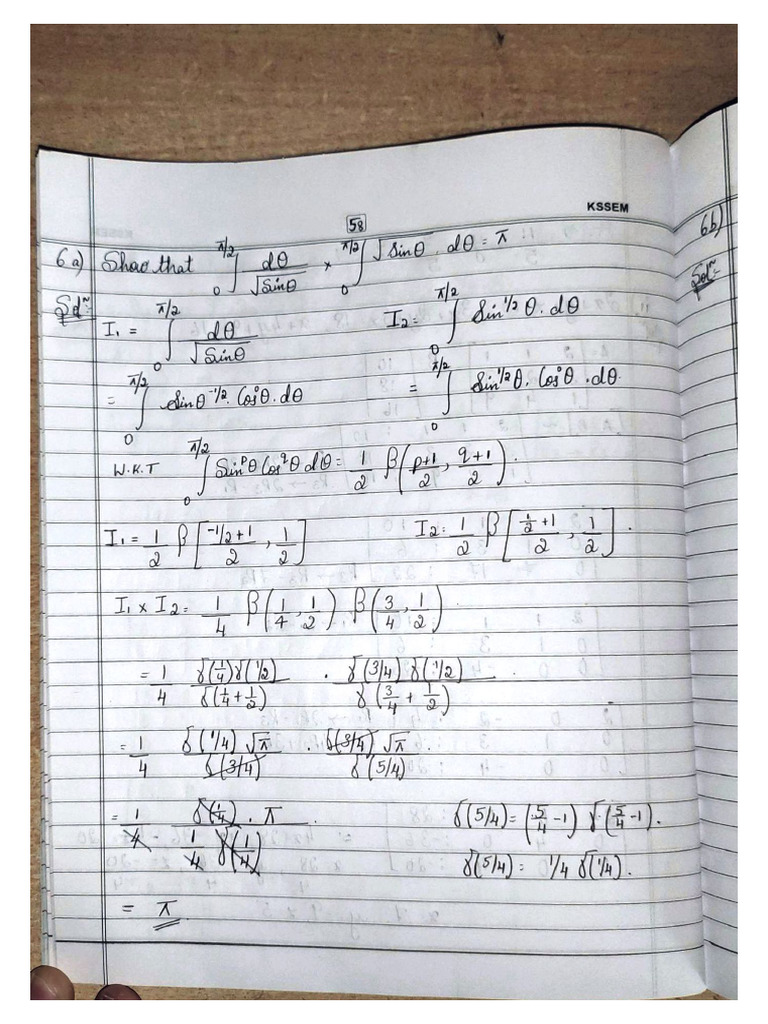 KSSEM
58
6a) Show that ∫₀^{π/2} dθ/√sinθ × ∫₀^{π/2} √sinθ . dθ = π
6b)
Solⁿ:- I₁ = ∫₀^{π/2} dθ/√sinθ    I₂ = ∫₀^{π/2} Sin^{1/2}θ . dθ
Solⁿ:-
= ∫₀^{π/2} Sinθ^{-1/2} . Cos⁰θ . dθ    = ∫₀^{π/2} Sin^{1/2}θ . Cos⁰θ . dθ.
W.K.T ∫₀^{π/2} Sin^pθ Cos^qθ dθ = 1/2 β((p+1)/2, (q+1)/2).
I₁ = 1/2 β[(-1/2+1)/2, 1/2]    I₂ = 1/2 β[(1/2+1)/2, 1/2].
I₁ × I₂ = 1/4 β(1/4, 1/2) β(3/4, 1/2).
= 1/4 γ(1/4)γ(1/2)/γ(1/4 + 1/2) . γ(3/4) γ(1/2)/γ(3/4 + 1/2).
= 1/4 γ(1/4) √π/γ(3/4) . γ(3/4) √π/γ(5/4).
= 1/4 γ(1/4) . π/(1/4 γ(1/4))    γ(5/4) = (5/4 -1) γ(5/4 -1).
γ(5/4) = 1/4 γ(1/4).
= π